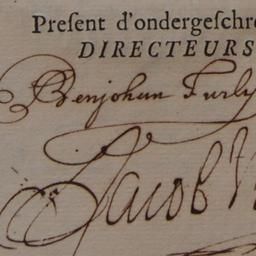 Preſent d'ondergeſchre
DIRECTEURS
Benjohan Furly
Jacob